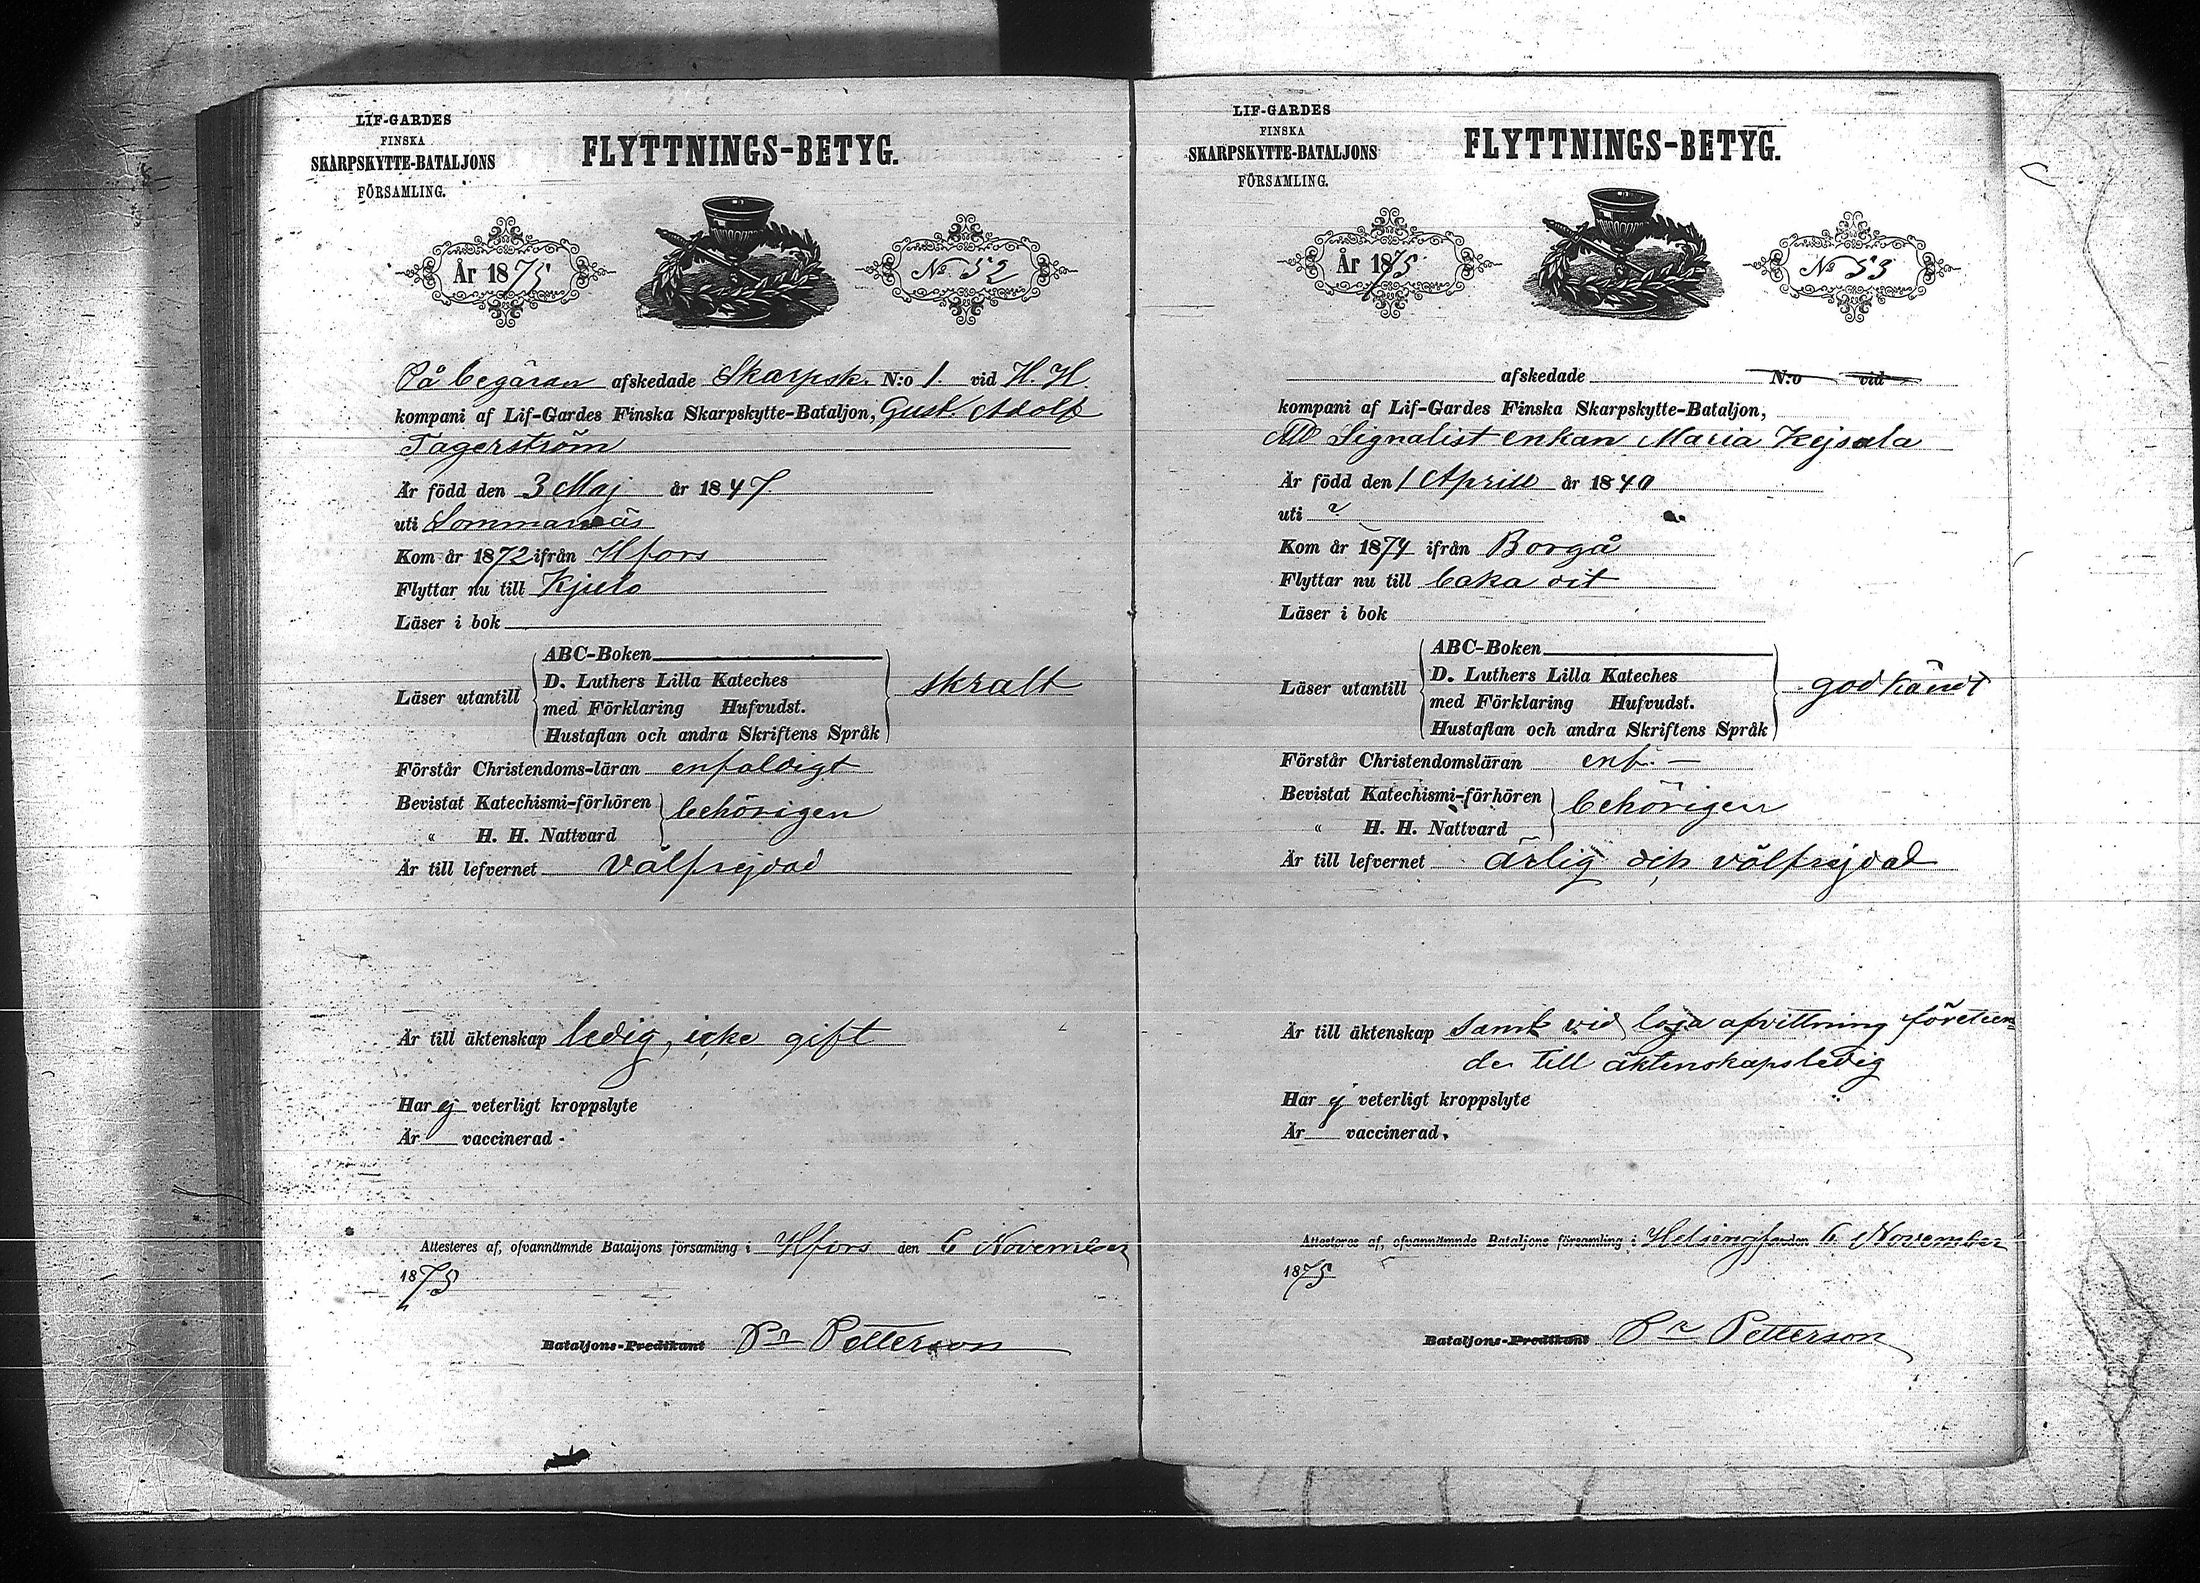 LIF-GARDES
FINSKA
SKARPSKYTTE-BATALJONS
FÖRSAMLING.
FLYTTNINGS-BETYG.
År 1875
No 52
På begäran afskedade Skarpsk. N:o 1. vid H. H.
kompani af Lif-Gardes Finska Skarpskytte-Bataljon, Gust. Adolf
Tagerström
Är född den 3 Maj år 1847.
uti Sommarnäs
Kom år 1872 ifrån Hfors
Flyttar nu till Kjulo
Läser i bok
ABC-Boken
Läser utantill D. Luthers Lilla Kateches skralt
med Förklaring Hufvudst.
Hustaflan och andra Skriftens Språk
Förstår Christendoms-läran enfaldigt
Bevistat Katechismi-förhören behörigen
" H. H. Nattvard
Är till lefvernet välfrejdad
Är till äktenskap ledig, icke gift
Har ej veterligt kroppslyte
Är vaccinerad.
Attesteras af, ofvannämnde Bataljons församling i Hfors den 6 November
1875
Bataljons-Predikant Pr Petterson
LIF-GARDES
FINSKA
SKARPSKYTTE-BATALJONS
FÖRSAMLING.
FLYTTNINGS-BETYG.
År 1875
No 53
afskedade N:o vid
kompani af Lif-Gardes Finska Skarpskytte-Bataljon,
Signalist enkan Maria Kejsala
Är född den 1 Aprill år 1840
uti ?
Kom år 1874 ifrån Borgå
Flyttar nu till baka dit
Läser i bok
ABC-Boken
Läser utantill D. Luthers Lilla Kateches godkändt
med Förklaring Hufvudst.
Hustaflan och andra Skriftens Språk
Förstår Christendomsläran enf. —
Bevistat Katechismi-förhören behörigen
" H. H. Nattvard
Är till lefvernet ärlig och välfrejdad
Är till äktenskap samt vid laga afvittning företeen-
de till äktenskaps ledig
Har ej veterligt kroppslyte
Är vaccinerad.
Attesteras af, ofvannämnde Bataljons församling i Helsingfors den 6 November
1875
Bataljons-Predikant Pr Petterson